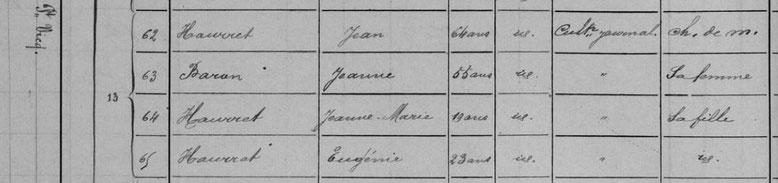 62 Haurret Jean 64 ans id. Cultr journal. Ch. de m.
63 Baron Jeanne 55 ans id. " Sa femme
13
64 Haurret Jeanne-Marie 19 ans id. " Sa fille
65 Haurret Eugénie 23 ans id. " id.